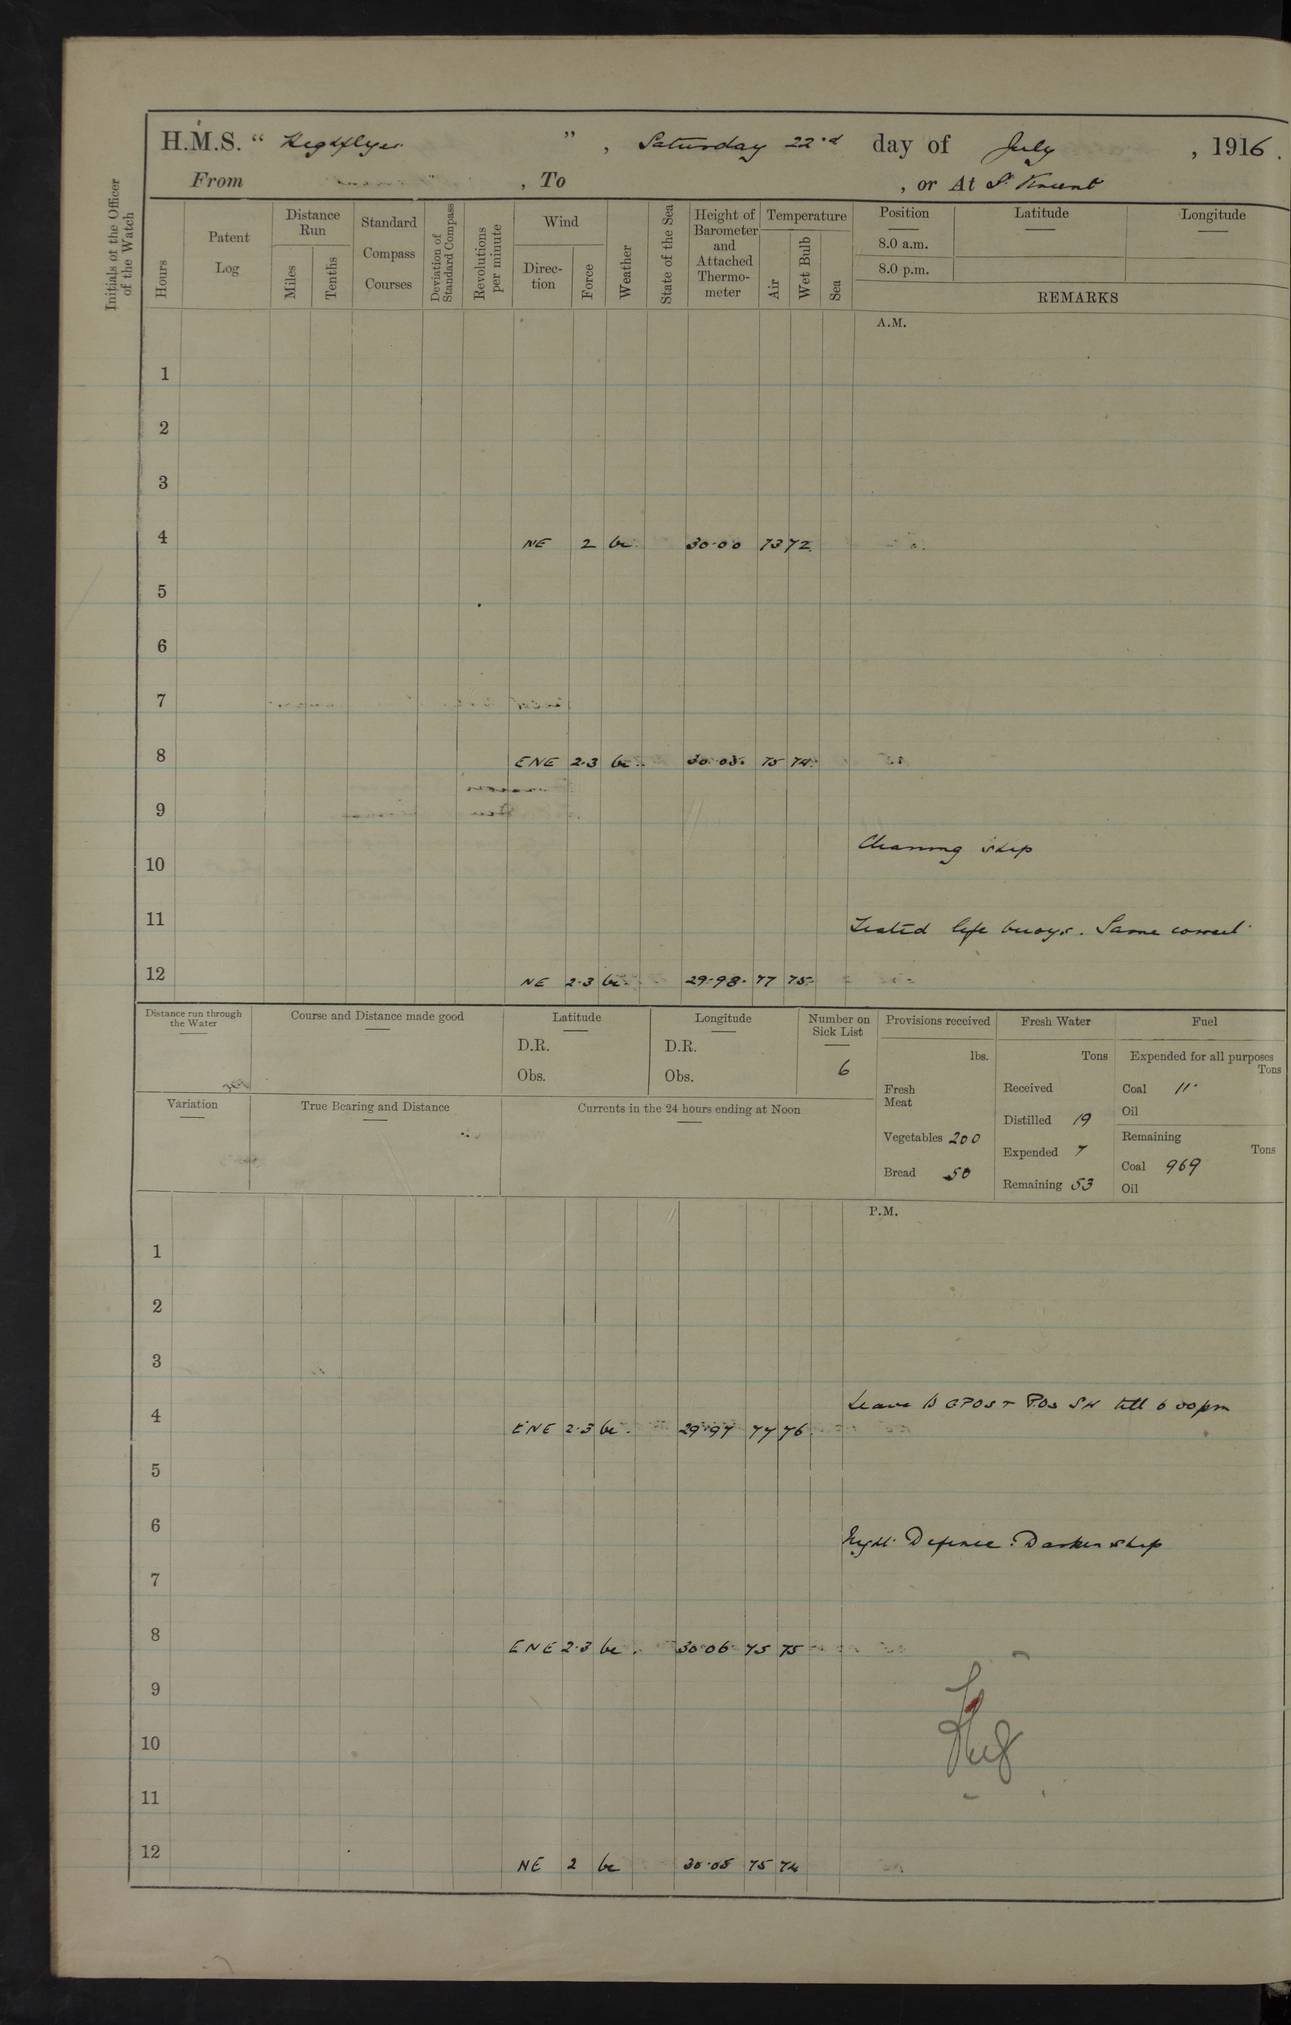 H.M.S. “ Highflyer ” , Saturday 22nd day of July , 1916 .
From , To , or At St Vincent
Initials of the Officer of the Watch
Hours
Patent Log
Distance Run
Miles
Tenths
Standard Compass Courses
Deviation of Standard Compass
Revolutions per minute
Wind
Direc-tion
Force
Weather
State of the Sea
Height of Barometer and Attached Thermo-meter
Temperature
Air
Wet Bulb
Sea
Position
8.0 a.m.
8.0 p.m.
Latitude
Longitude
REMARKS
A.M.
1
2
3
4 NE 2 bc 30.00 73 72
5
6
7
8 ENE 2.3 bc 75 74
9
Cleaning ship
10
11 Tested life buoys. Same correct
12 NE 2.3 bc 29.98 77 75
Distance run through the Water
Course and Distance made good
Latitude
D.R.
Obs.
Longitude
D.R.
Obs.
Number on Sick List
6
Provisions received
lbs.
Fresh Meat
Vegetables 200
Bread 50
Fresh Water
Tons
Received
Distilled 19
Expended 7
Remaining 53
Fuel
Expended for all purposes
Tons
Coal 11
Oil
Remaining
Tons
Coal 969
Oil
Variation
True Bearing and Distance
Currents in the 24 hours ending at Noon
P.M.
1
2
3
Leave to CPOs + POs till 6 30pm
4 ENE 2.3 bc 29.97 77 76
5
6 Night Defence. Darken ship
7
8 ENE 2.3 bc 30.06 75 75
9
10
11
12 NE 2 bc 30.05 75 74